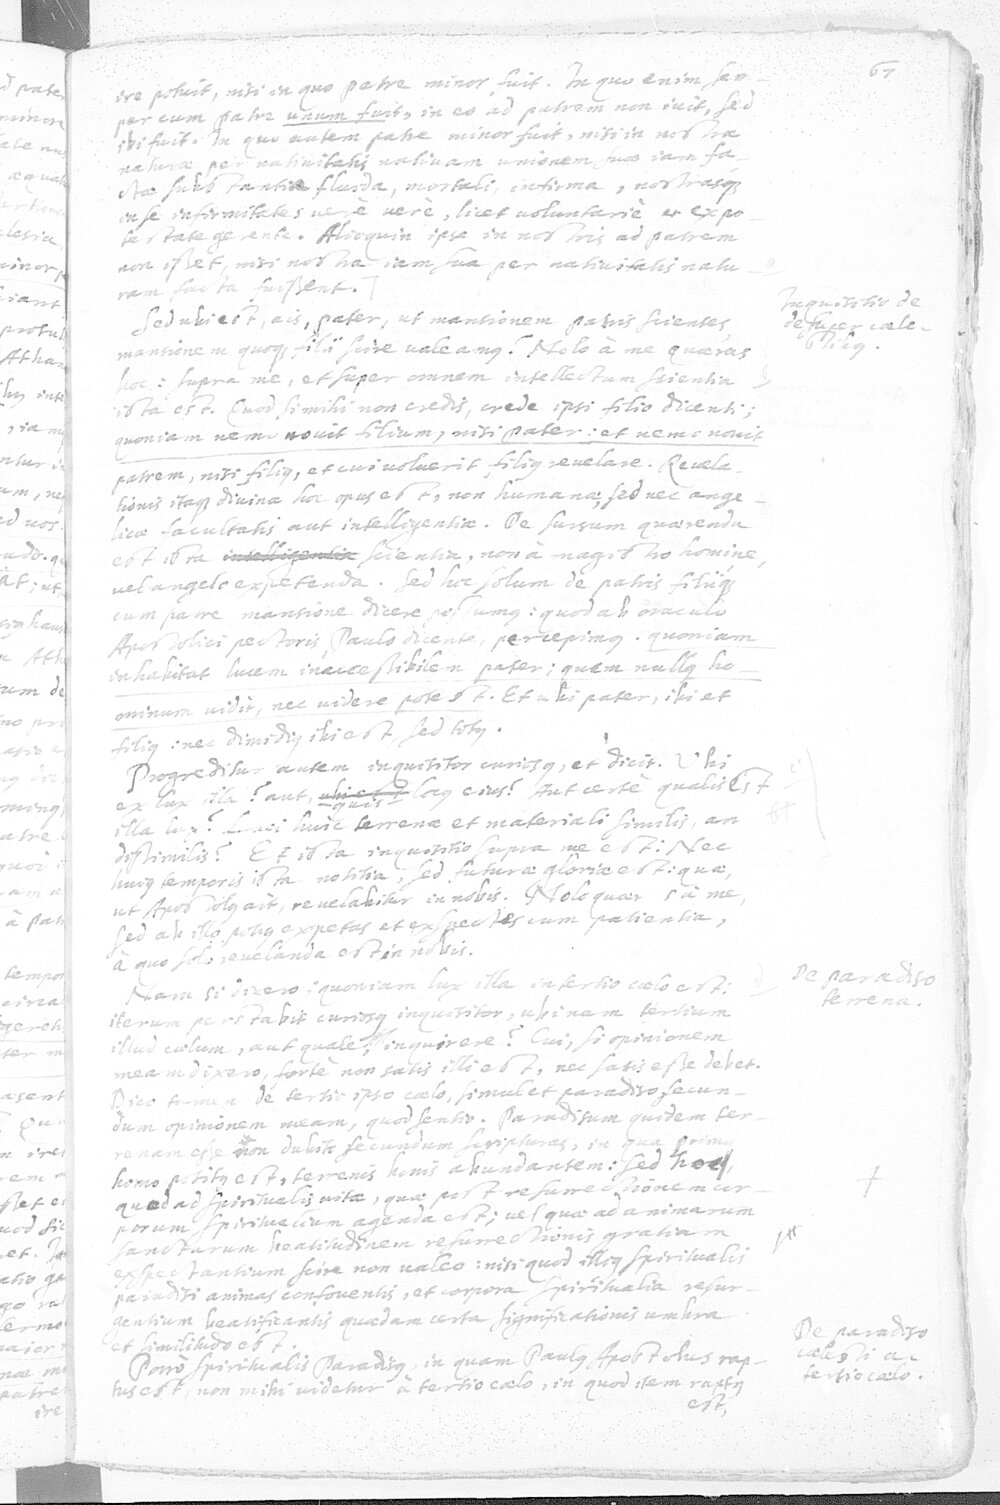 67
ire potuit, nisi in quo patre minor fuit. In quo enim sem-
per cum patre unum fuit, in eo ad patrem non ivit, sed
ibi fuit. In quo autem patre minor fuit, nisi in nostra
natura per nativitatis nativam unionem sua iam fa-
cta substantia fluida, mortali, infirma, nostrasq
in se infirmitates verè verè, licet voluntariè et ex po-
testate gerente. Alioquin ipse in nostris ad patrem
non isset, nisi nostra iam sua per nativitatis natu-
ram facta fuissent.
Sed ubi est, ais, pater, ut mansionem patris scientes
mansionem quoq filii scire valeamq? Nolo à me quæras
hoc: supra me, et super omnem intellectum scientia
ista est. Quod si mihi non credis, crede ipsi filio dicenti;
quoniam nemo novit filium, nisi pater: et nemo novit
patrem, nisi filiq, et cui voluerit filiq revelare. Revela-
tionis itaq divinæ hoc opus est, non humanæ, sed nec ange-
licæ facultatis aut intelligentiæ. De sursum quærenda
est ista intelligentia scientia, non à magistro homine,
vel angelo expetenda. Sed hoc solum de patris filiiq
cum patre mansione dicere possumq: quod ab oraculo
Apostolici pectoris, Paulo dicente, percepimq. quoniam
inhabitat lucem inaccessibilem pater; quem nullq ho-
minum vidit, nec videre potest. Et ubi pater, ibi et
filiq: nec dimidiq ibi est, sed totq.
Progreditur autem inquisitor curiosq, et dicit. Ubi
ex lux illa? aut, ubi est quis locq eius? Aut certè qualis est
illa lux? Luci huic terrenæ et materiali similis, an
dissimilis? Et ista inquisitio supra me est: Nec
huiq temporis ista notitia, sed futuræ gloriæ est: quæ,
ut Apostolq ait, revelabitur in nobis. Nolo quæras à me,
sed ab illo potiq expetas et exspectes cum patientia,
à quo solo revelanda est in nobis.
Nam si dixero: quoniam lux illa in tertio cælo est:
iterum perstabit curiosq inquisitor, ubinam tertium
illud cælum, aut quale, inquirere? Cui, si opinionem
meam dixero, fortè non satis illi est, nec satis esse debet.
Dico tamen de tertio ipso cælo, simul et paradiso secun-
dum opinionem meam, quod sentio. Paradisum quidem ter-
renam esse non dubito secundum scripturas, in qua primq
homo positq est, terrenis bonis abundantem: sed hoc,
quod ad spiritualis vitæ, quæ post resurrectionem cor-
porum spiritualium agenda est; vel quæ ad animarum
sanctarum beatitudinem resurrectionis gratiam
exspectantium scire non valeo: nisi quod illiq spiritualis
paradisi animas confoventis, et corpora spiritualia resur-
gentium beatificantis quædam certa significationis umbra
et similitudo est.
Porrò spiritualis Paradisq, in quam Paulq Apostolus rap-
tus est, non mihi videtur à tertio cælo, in quod item raptq
est,
Inquisitio de
de super cæle-
stibq.
De paradiso
terrena.
De paradiso
cælesti a-
tertio cælo.